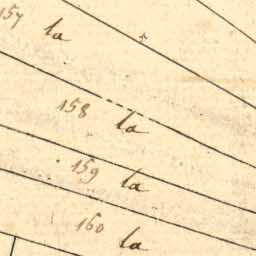 157 la
158 la
159 la
160 la